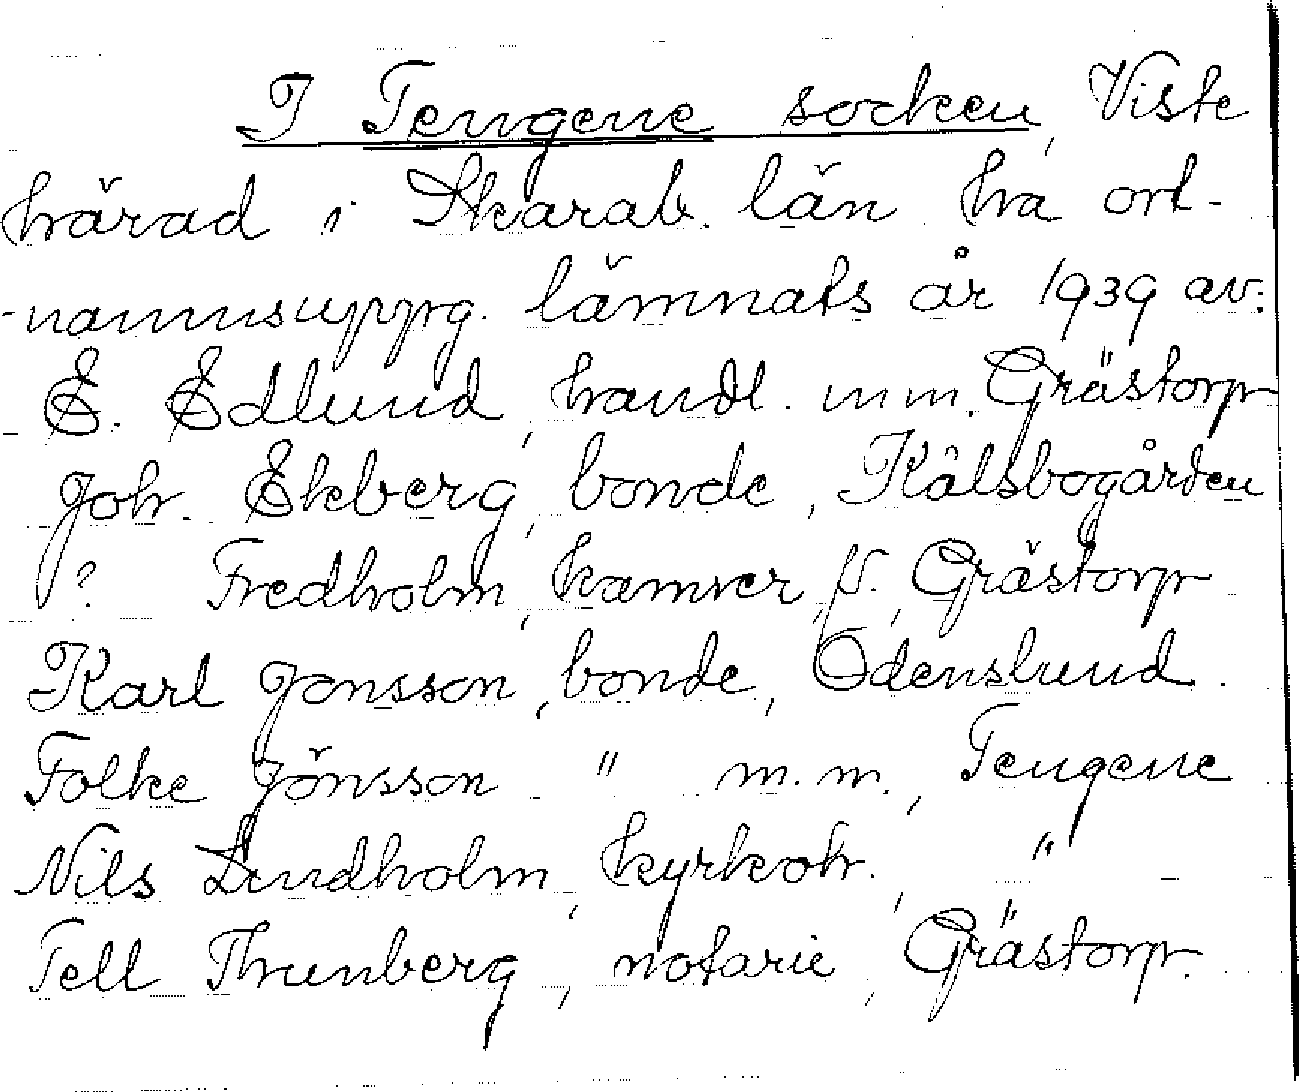 I Tengene socken, Viste
härad i Skarab. län ha ort-
-namnsuppg. lämnats år 1939 av:
E. Edlund, handl. m.m. Grästorp
Joh. Ekberg, bonde, Kålsbogården
? Fredholm, kamrer, f., Grästorp
Karl Jonsson, bonde, Odenslund.
Folke Jönsson " m.m., Tengene
Nils Lindholm, kyrkoh., "
Tell Thunberg, notarie, Grästorp.